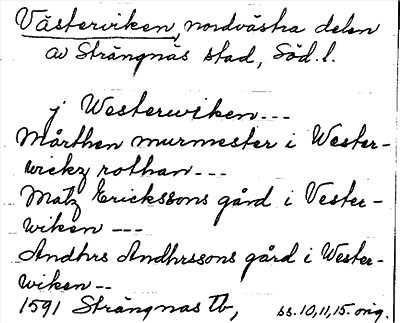 Västerviken, nordvästra delen
av Strängnäs stad, Söd.l.
j Westerwiken---
Mårthen murmester i Wester-
wickz rothan---
Matz Ericksson gård i Vester-
wiken ---
Andhrs Andhrssons gård i Wester-
wiken--
1591 Strängnas Tb, ss.10,11,15. orig.